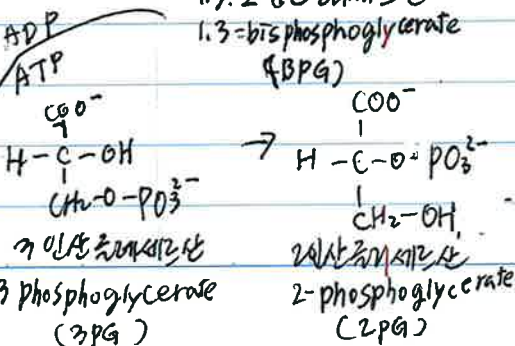 ADP
ATP
1.3=bisphosphoglycerate
(BPG)
COO⁻
H-C-OH
CH₂-O-PO₃²⁻
3인산글리세르산
3 phosphoglycerate
(3PG)
→
COO⁻
H-C-O-PO₃²⁻
CH₂-OH
2인산글리세르산
2-phosphoglycerate
(2PG)